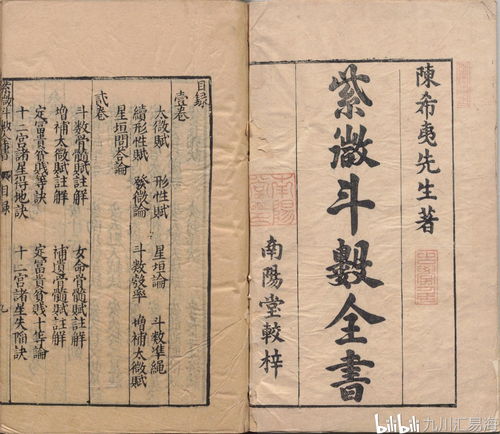 陳希夷先生著
紫微斗數全書
南陽堂較梓
目錄
壹卷
太微賦 形性賦 星垣論 斗數準繩
續形性賦 發微論 斗數發率 增補太微賦
星垣問答論
貳卷
斗數骨髓賦註解 女命骨髓賦註解
增補太微賦註解 補遺骨髓賦註解
定富貴貧賤等訣 定富貴貧賤十等論
十二宮諸星得地訣 十二宮諸星失陷訣
紫微斗數全書 目錄
bilibili 九川汇易海